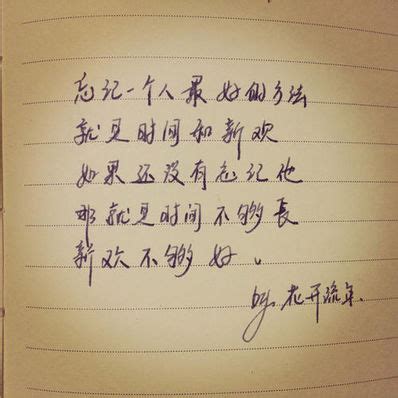 忘记一个人最好的方法
就是时间和新欢
如果还没有忘记他
那就是时间不够長
新欢不够好。
by. 花开流年.